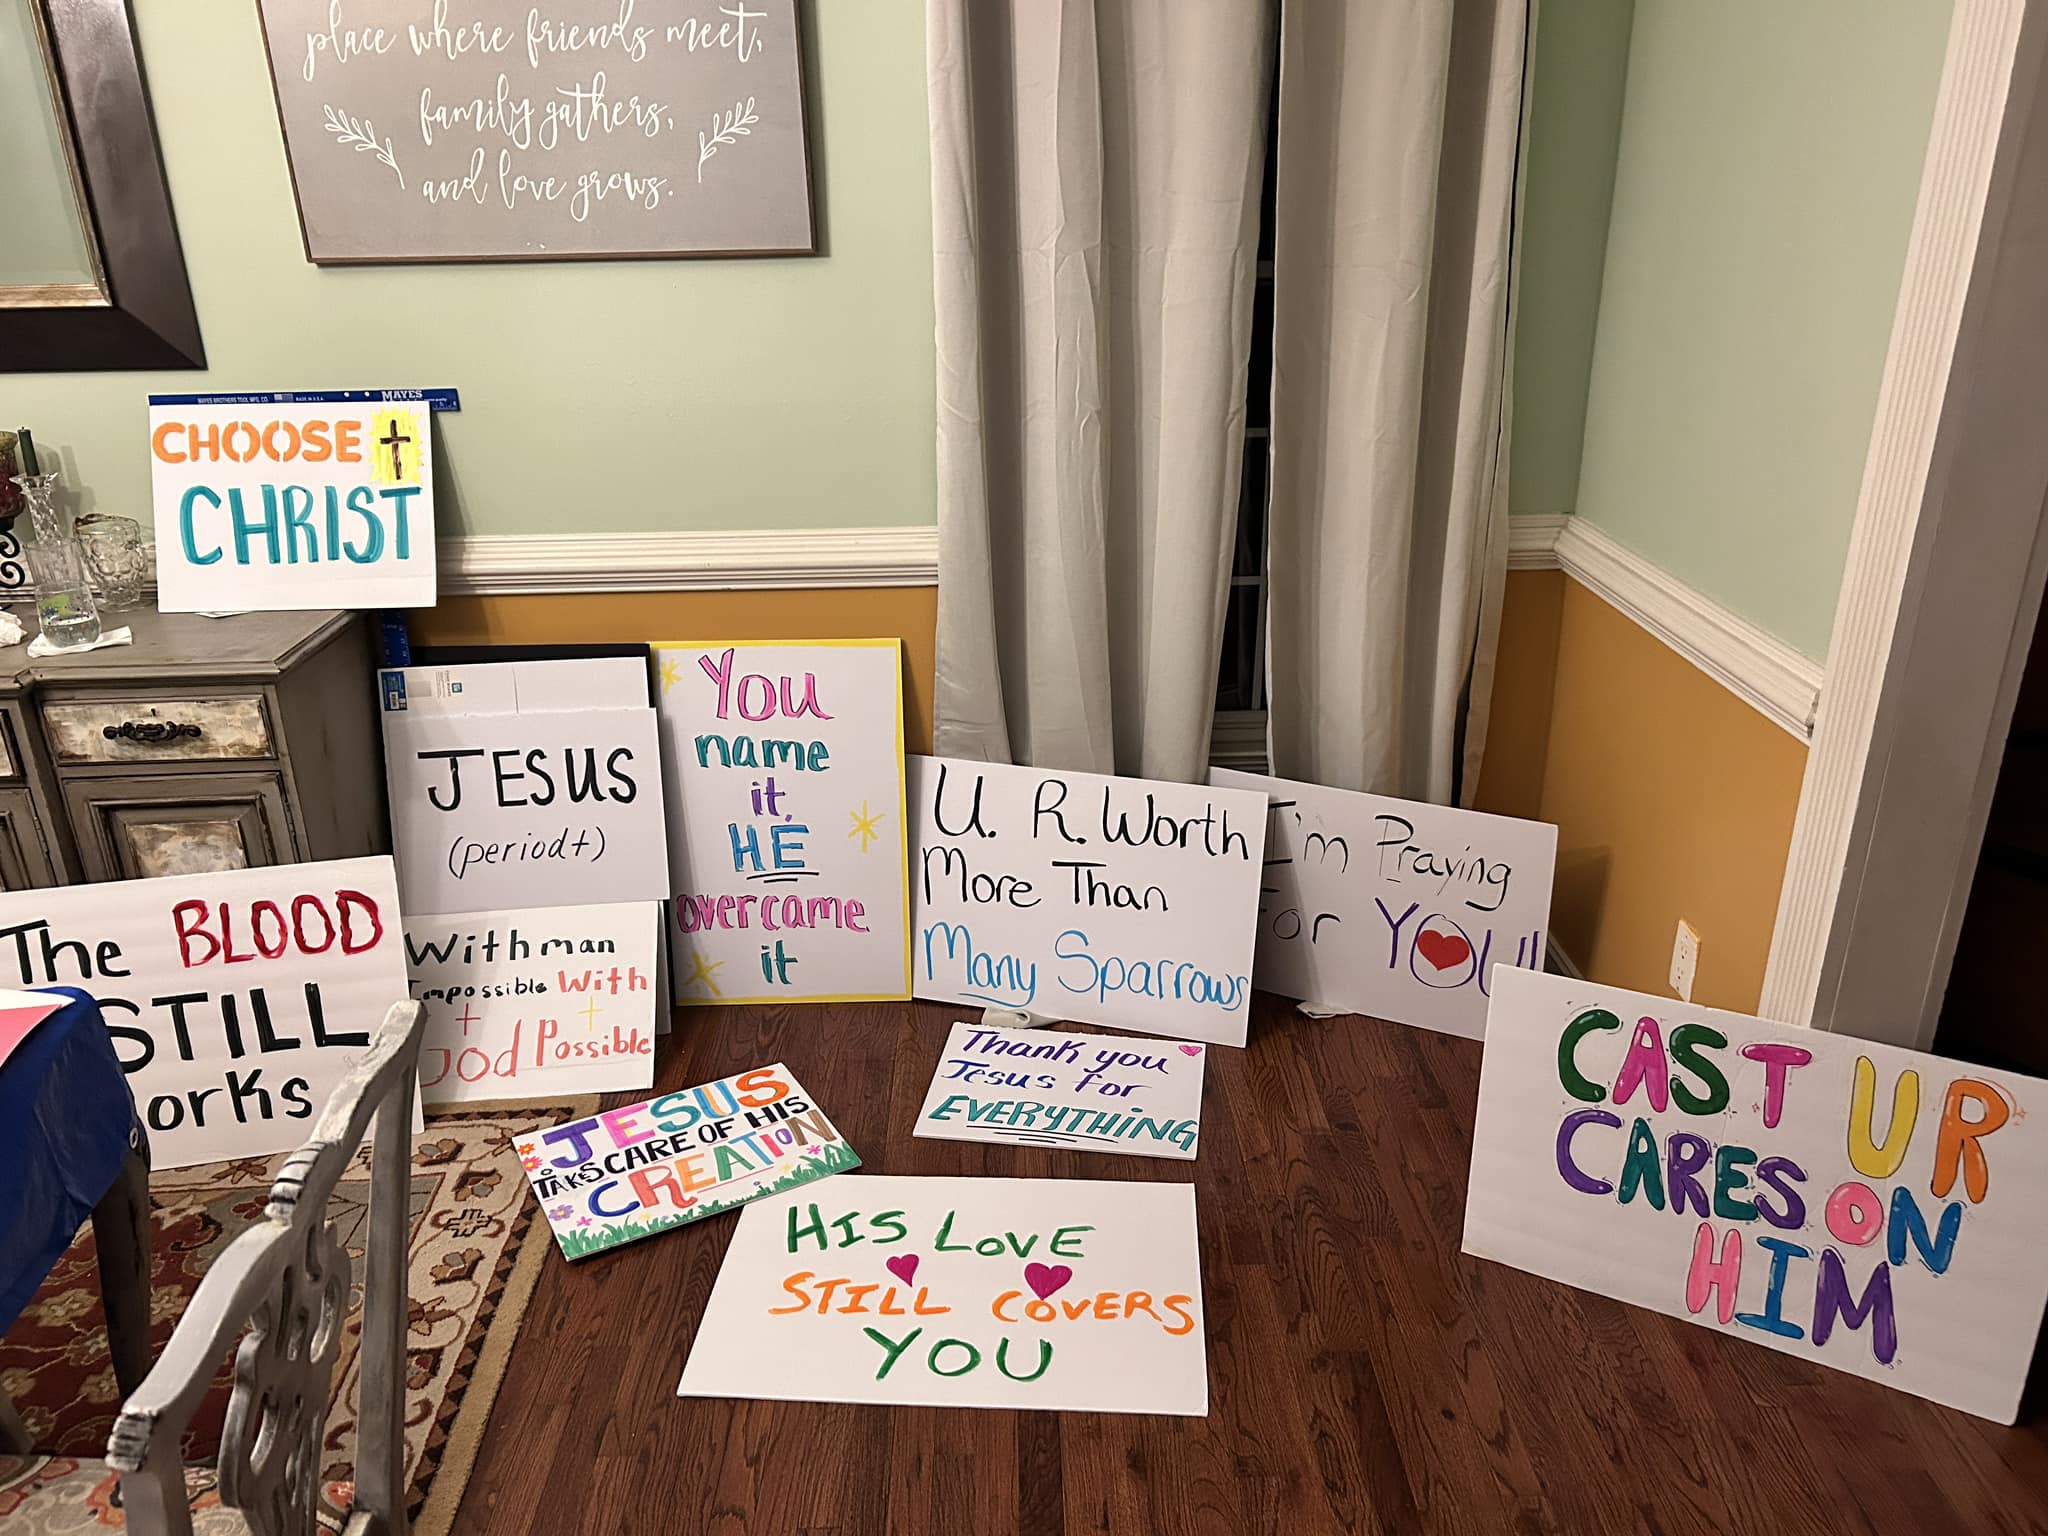 place where friends meet,
family gathers,
and love grows.
MAYES BROTHERS TOOL MFG. CO.
MADE IN U.S.A.
MAYES
CHOOSE
CHRIST
JESUS
(period†)
You
name
it,
HE
overcame
it
U. R. Worth
More Than
Many Sparrows
I'm Praying
For YOU!!
The BLOOD
STILL
orks
With man
Impossible With
God Possible
Thank you
Jesus for
EVERYTHING
JESUS
TAKES CARE OF HIS
CREATION
HIS LOVE
STILL COVERS
YOU
CAST UR
CARES ON
HIM